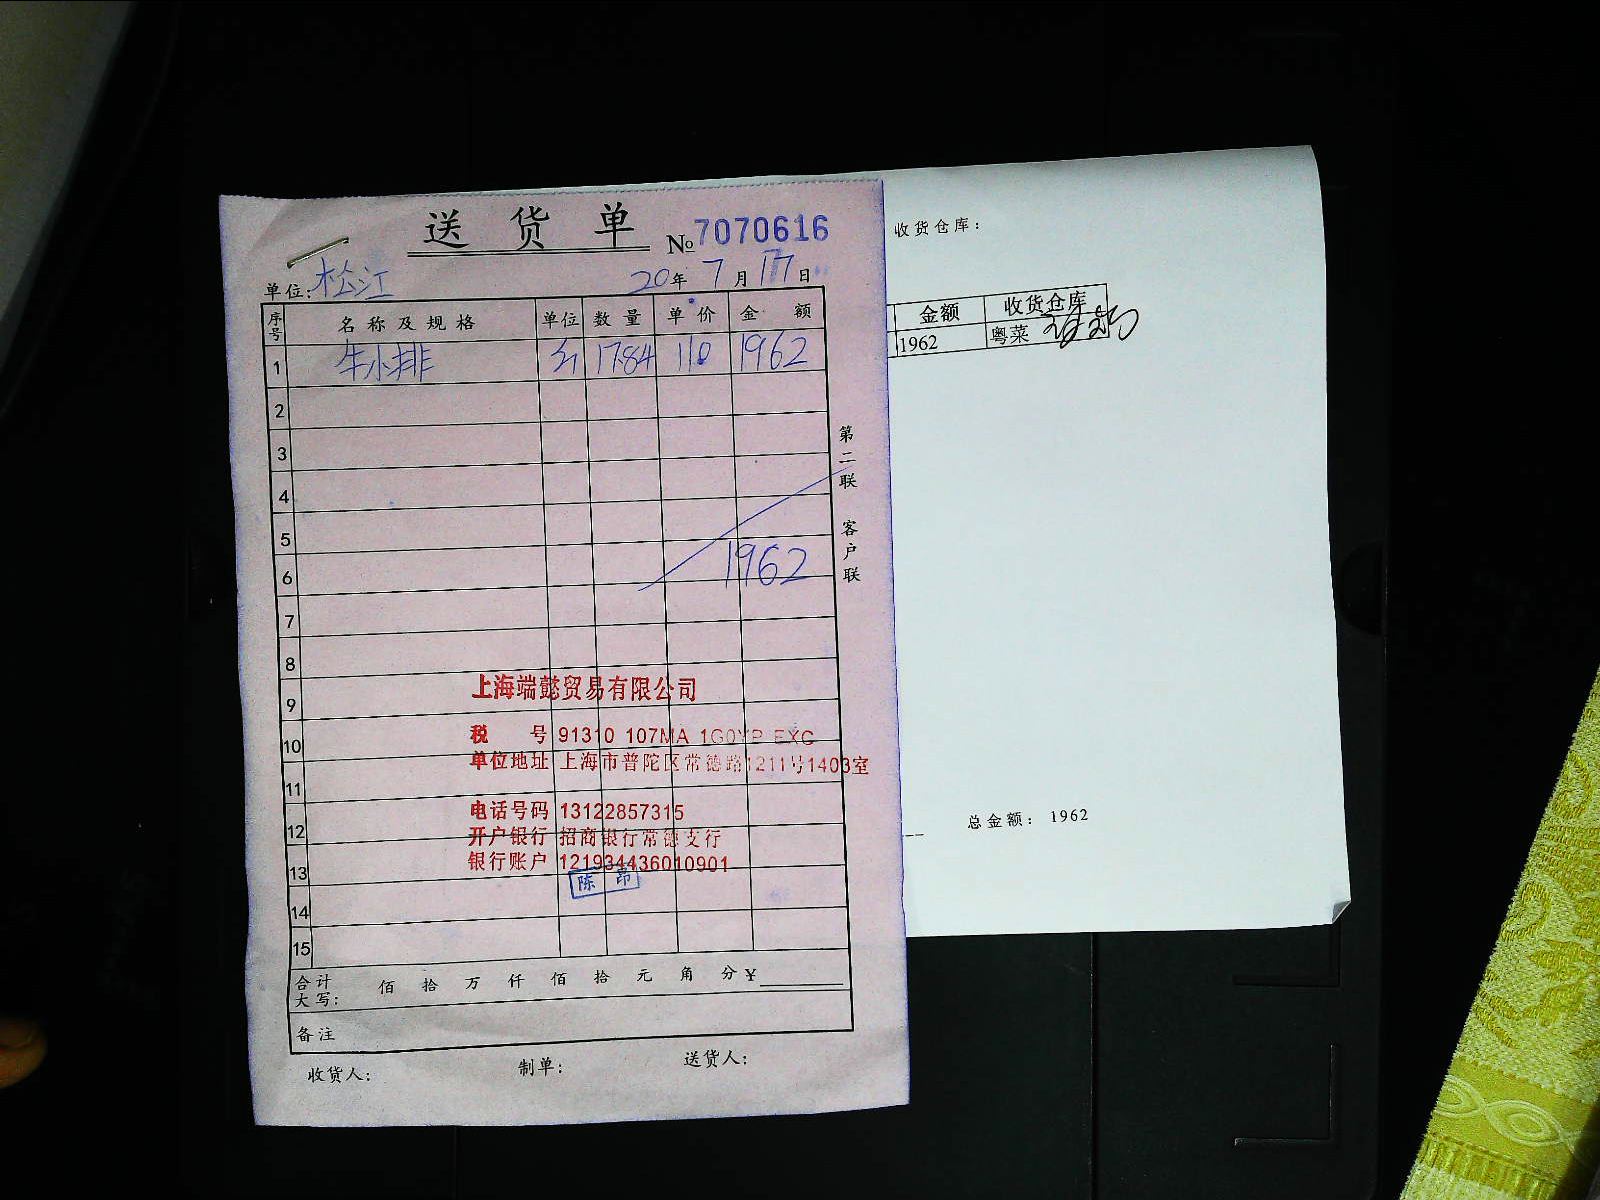 送货单 № 7070616
单位：松江 20年7月17日
序号 名称及规格 单位 数量 单价 金额
1 牛小排 斤 17.84 110 1962
2
3
4
5
6 1962
7
8
9
10
11
12
13
14
15
上海端懿贸易有限公司
税号 91310 107MA 1G0YP EXC
单位地址 上海市普陀区常德路1211号1403室
电话号码 13122857315
开户银行 招商银行常德支行
银行账户 121934436010901
陈昂
合计大写： 佰 拾 万 仟 佰 拾 元 角 分 ¥
备注
收货人： 制单： 送货人：
第二联 客户联
收货仓库：
金额 收货仓库
1962 粤菜
总金额： 1962